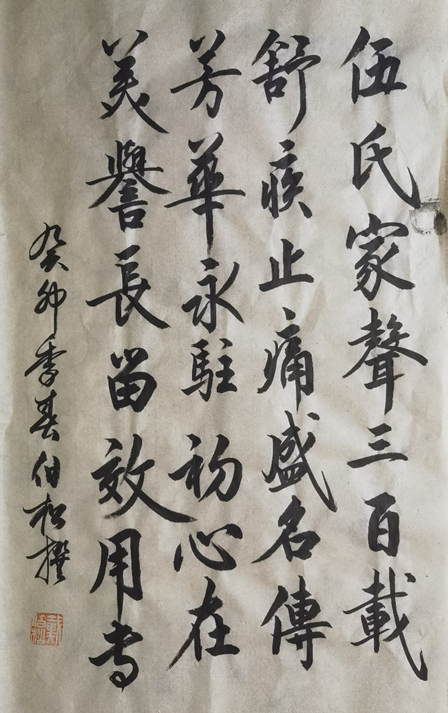 伍氏家聲三百載
舒痰止痛盛名傳
芳華永駐初心在
美譽長留效用專
癸卯季春伯松撰